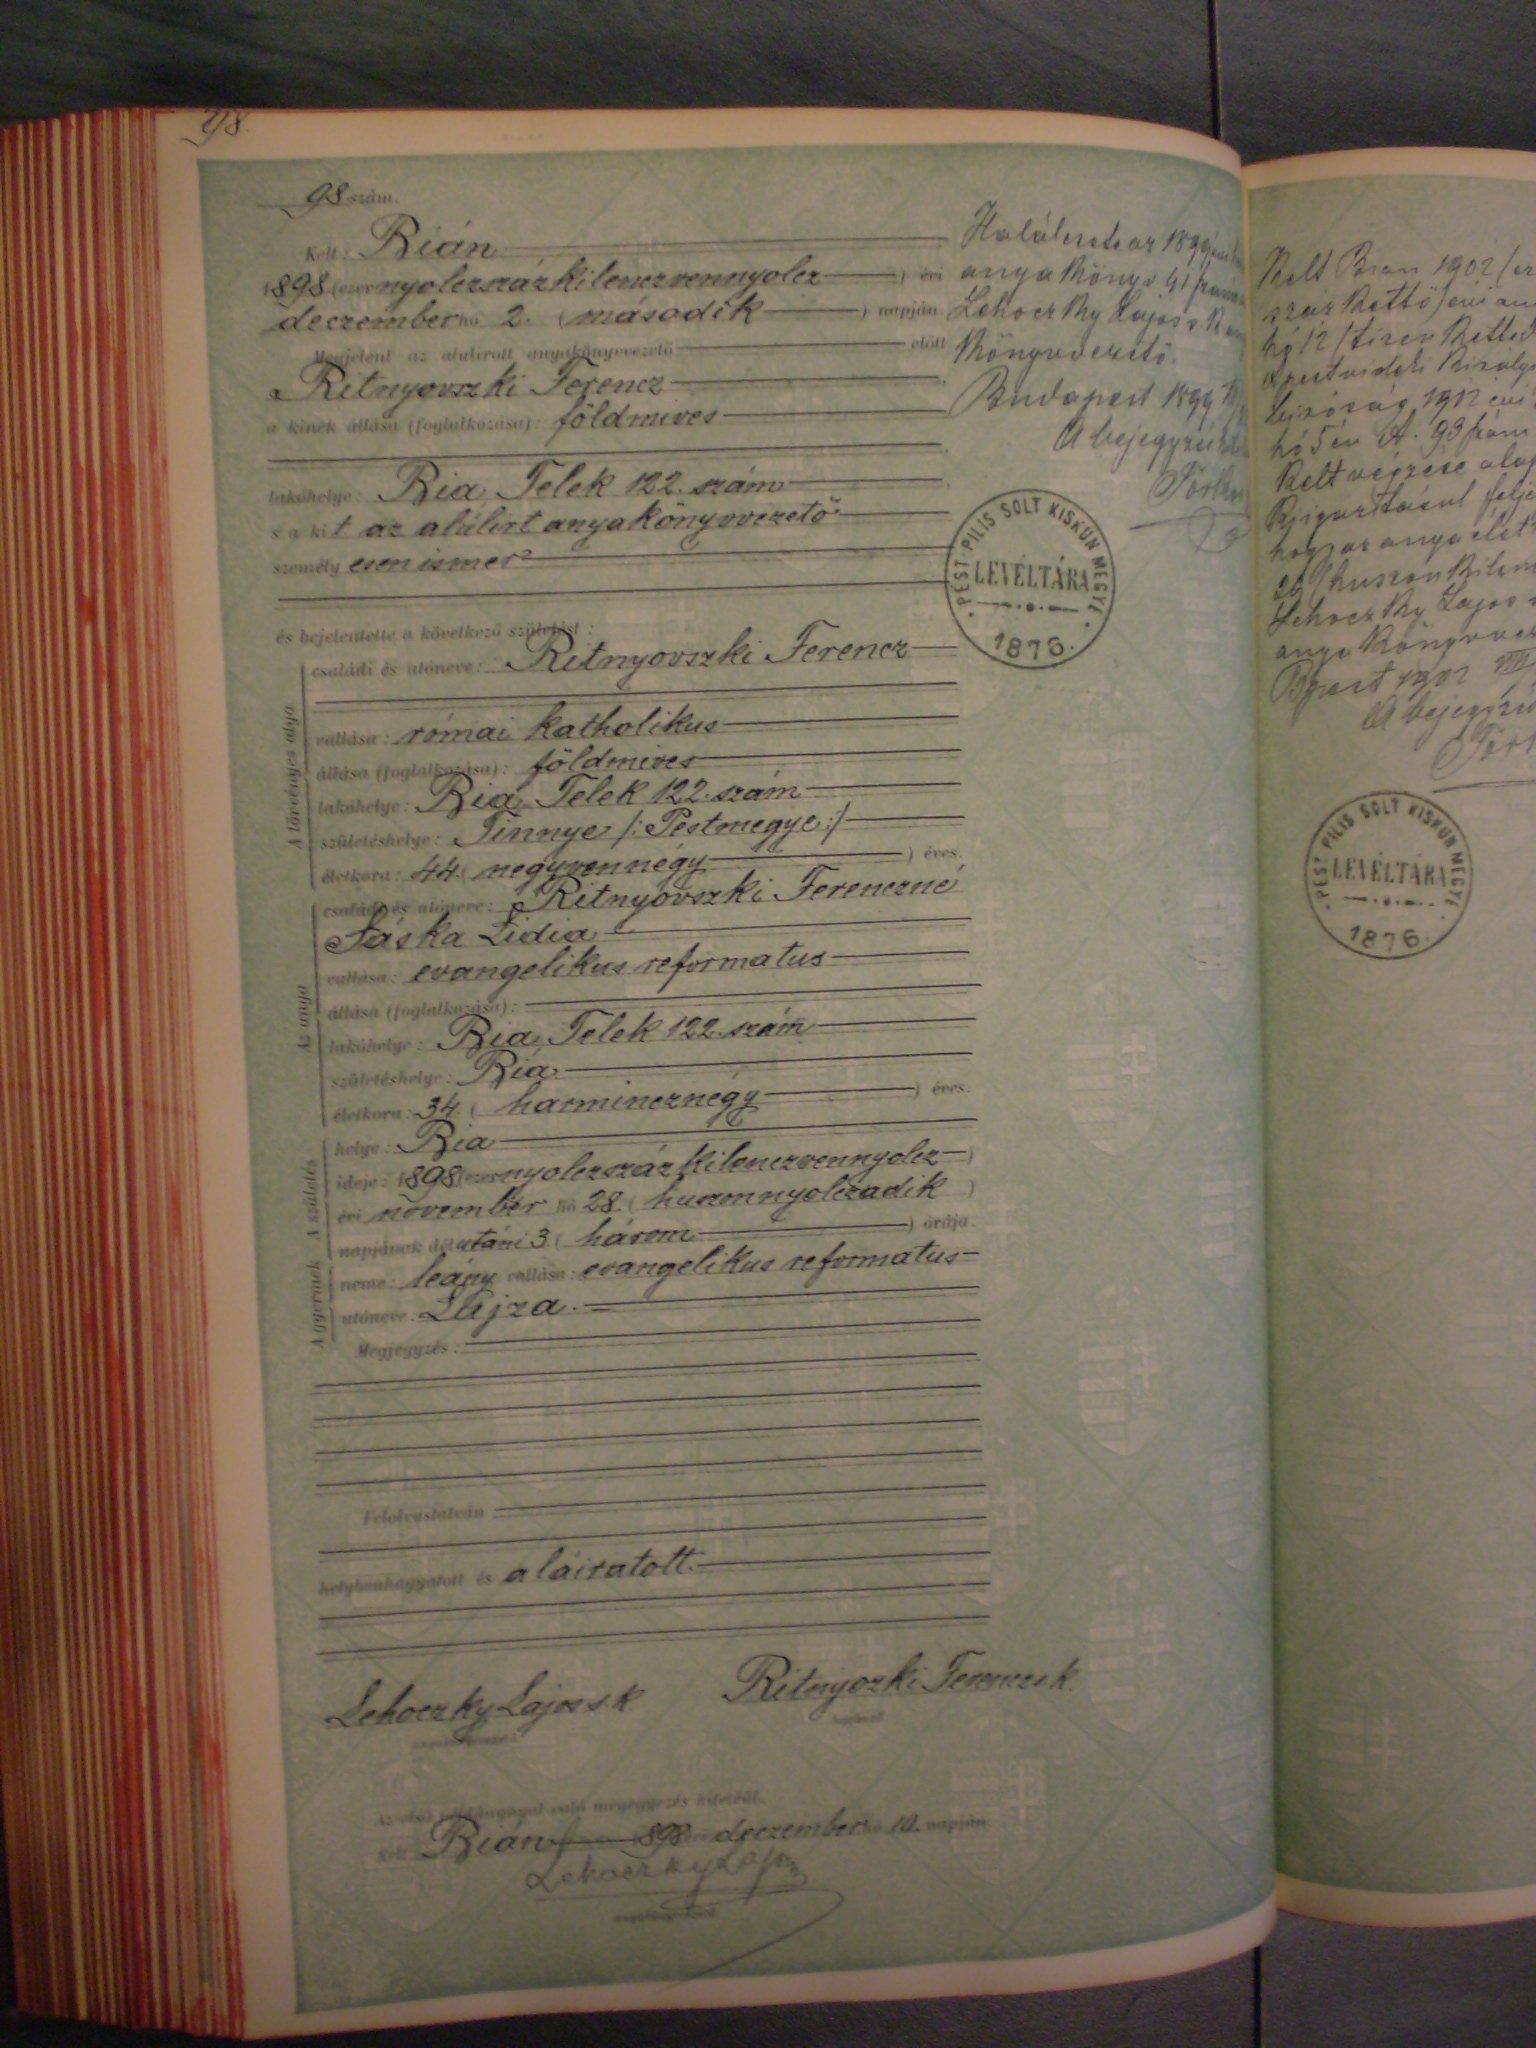 98
98 szám.
Kelt: Bián
1898 (ezernyolczszázkilenczvennyolcz) évi
deczember hó 2. (második) napján
Megjelent az alulirott anyakönyvvezető előtt
Ritnyovszki Ferencz
a kinek állása (foglalkozása): földmives
lakóhelye: Bia Telek 122. szám
s a kit az alúlirt anyakönyvvezető
személyesen ismer
és bejelentette a következő születést:
A törvényes atya
családi és utóneve: Ritnyovszki Ferencz
vallása: római katholikus
állása (foglalkozása): földmives
lakóhelye: Bia Telek 122. szám
születéshelye: Tinnye /: Pestmegye :/
életkora: 44. (negyvennégy) éves.
Az anya
családi és utóneve: Ritnyovszki Ferenczné
Sáska Lidia
vallása: evangelikus reformatus
állása (foglalkozása):
lakóhelye: Bia, Telek 122. szám
születéshelye: Bia
életkora: 34. (harmincznégy) éves.
A születés
helye: Bia
ideje: 1898 (ezernyolczszázkilenczvennyolcz)
évi november hó 28. (huszonnyolczadik)
napjának délutáni 3. (három) órája.
A gyermek
neme: leány vallása: evangelikus reformatus
utóneve: Lujza.
Megjegyzés:
Felolvastatván
helybenhagyatott és aláiratott.
Lehoczky Lajos s.k.
Ritnyozki Ferencz s.k.
Az első példánynyal való megegyezés hiteléül.
Kelt Bián 1898 deczember hó 10. napján
Lehoczky Lajos
anyakönyvvezető
Halálesete az 1899
anyakönyv 41
Lehoczky Lajos s.k.
könyvvezető.
Budapest 1899
A bejegyzés
PEST PILIS SOLT KISKUN MEGYE
LEVÉLTÁRA
1876.
Kelt Bian 1902
száz kettő) évi
hó 12 /tizenketted
pestvidéki királyi
biróság 1902 évi
hó 5 én A. 93 szám
kelt végzése
kiigazitásul
hogy az anya
/huszonkilenc
Lehoczky Lajos
anyakönyvvez
Bpest 1902 VIII
A bejegyzés
PEST PILIS SOLT KISKUN MEGYE
LEVÉLTÁRA
1876.